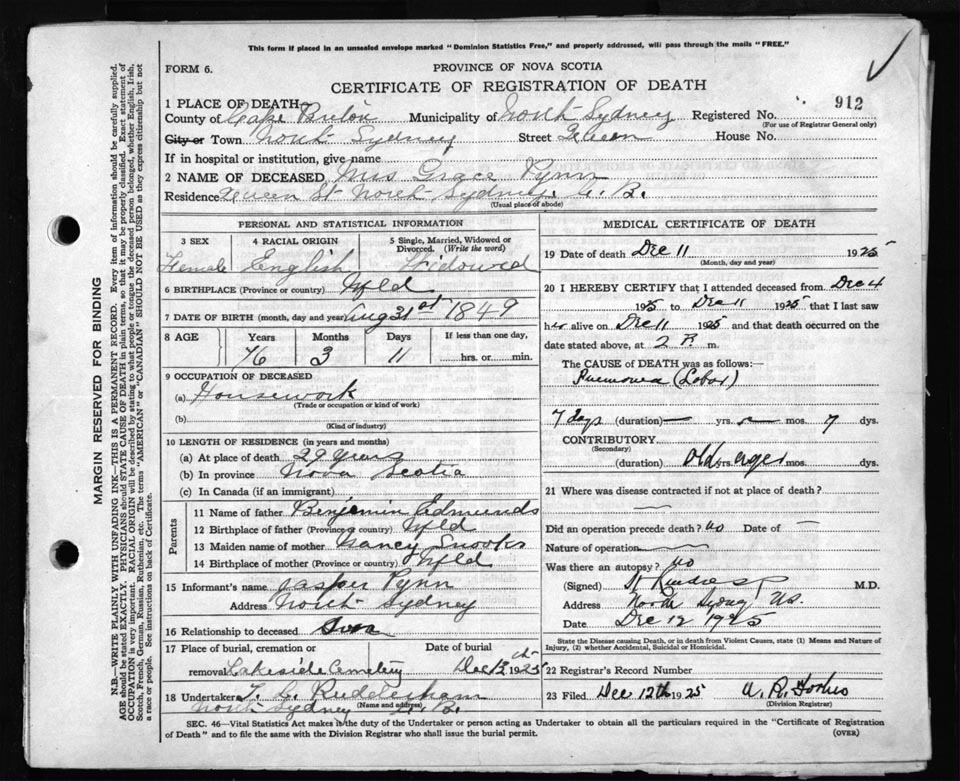 This form if placed in an unsealed envelope marked "Dominion Statistics Free," and properly addressed, will pass through the mails "FREE."
FORM 6.
PROVINCE OF NOVA SCOTIA
CERTIFICATE OF REGISTRATION OF DEATH
912
1 PLACE OF DEATH—
County of Cape Breton Municipality of North Sydney Registered No.
(For use of Registrar General only)
City or Town North Sydney Street Queen House No.
If in hospital or institution, give name
2 NAME OF DECEASED Mrs Grace Pynn
Residence Queen St North Sydney. C. B.
(Usual place of abode)
PERSONAL AND STATISTICAL INFORMATION
3 SEX 4 RACIAL ORIGIN 5 Single, Married, Widowed or Divorced. (Write the word)
Female English Widowed
6 BIRTHPLACE (Province or country) Nfld
7 DATE OF BIRTH (month, day and year) Aug 31st 1849
8 AGE Years Months Days If less than one day,
76 3 11 ....hrs. or.....min.
9 OCCUPATION OF DECEASED
(a) Housework
(Trade or occupation or kind of work)
(b)
(Kind of industry)
10 LENGTH OF RESIDENCE (in years and months)
(a) At place of death 29 years
(b) In province Nova Scotia
(c) In Canada (if an immigrant)
Parents
11 Name of father Benjimin Edmunds
12 Birthplace of father (Province or country) Nfld
13 Maiden name of mother Nancy Snooks
14 Birthplace of mother (Province or country) Nfld
15 Informant's name Jasper Pynn
Address North Sydney
16 Relationship to deceased Son
17 Place of burial, cremation or Date of burial
removal Lakeside Cemetery Dec 12th 1925
18 Undertaker T. L. Rudderham
(Name and address)
North Sydney C. B.
MEDICAL CERTIFICATE OF DEATH
19 Date of death Dec 11 1925
(Month, day and year)
20 I HEREBY CERTIFY that I attended deceased from Dec 4
1925 to Dec 11 1925 that I last saw
her alive on Dec 11 1925 and that death occurred on
date stated above, at 2 P. m.
The CAUSE of DEATH was as follows:—
Pneumonia (Lobar)
7 days (duration) — yrs. — mos. 7 dys.
CONTRIBUTORY
(Secondary)
(duration) Old yrs. age mos. dys.
21 Where was disease contracted if not at place of death?
Did an operation precede death? No Date of —
Nature of operation
Was there an autopsy? No
(Signed) M.D.
Address North Sydney NS.
Date Dec 12 1925
State the Disease causing Death, or in death from Violent Causes, state (1) Means and Nature of
Injury, (2) whether Accidental, Suicidal or Homicidal.
22 Registrar's Record Number
23 Filed Dec 12th 1925
(Division Registrar)
SEC. 46—Vital Statistics Act makes it the duty of the Undertaker or person acting as Undertaker to obtain all the particulars required in the "Certificate of Registration
of Death" and to file the same with the Division Registrar who shall issue the burial permit.
(OVER)
MARGIN RESERVED FOR BINDING
N.B.—WRITE PLAINLY WITH UNFADING INK—THIS IS A PERMANENT RECORD. Every item of information should be carefully supplied.
AGE should be stated EXACTLY. PHYSICIANS should STATE CAUSE OF DEATH in plain terms, so that it may be properly classified. Exact statement of
OCCUPATION is very important. RACIAL ORIGIN will be described by stating to what people or tongue the deceased person belonged, whether English, Irish,
Scotch, French, German, Russian, Ruthenian, etc. The terms "AMERICAN" or "CANADIAN" SHOULD NOT BE USED as they express citizenship but not
a race or people. See instructions on back of Certificate.